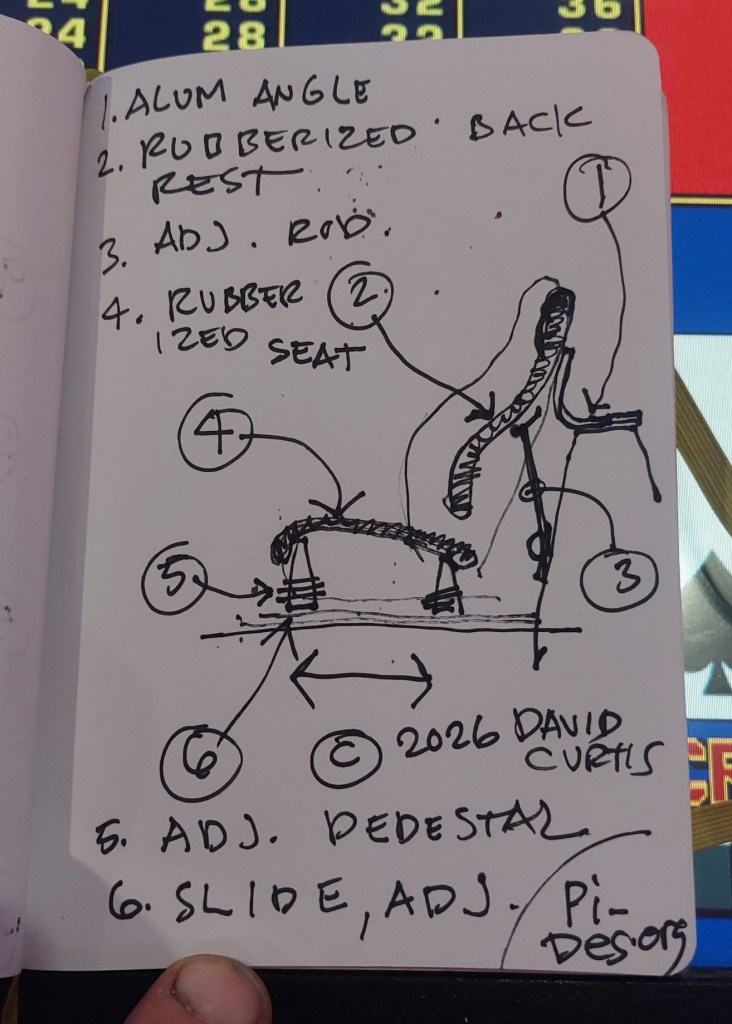 24 28 32 36
24 28 32 36
1. ALUM ANGLE
2. RUBBERIZED BACK
REST
3. ADJ. ROD.
4. RUBBER
IZED SEAT
1
2
4
5
3
6
© 2026 DAVID
CURTIS
5. ADJ. PEDESTAL
6. SLIDE, ADJ.
Pi-
Des.org